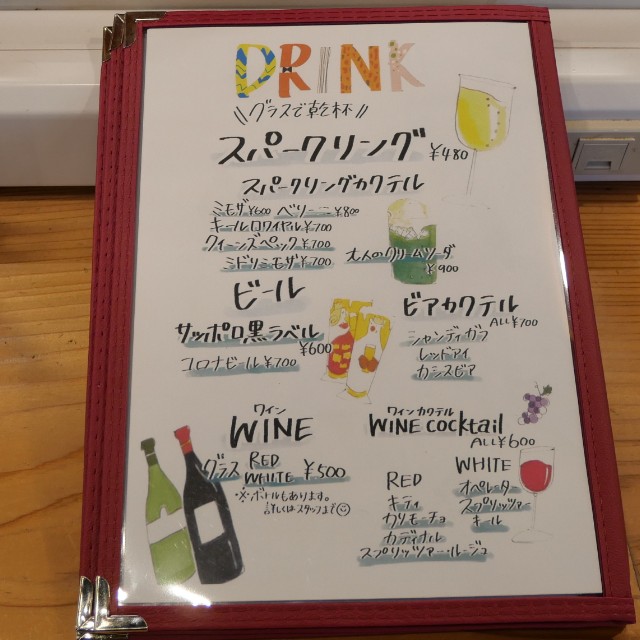 DRINK
\\グラスで乾杯//
スパークリング ¥480
スパークリングカクテル
ミモザ¥600 ベリーニ¥800
キールロワイヤル¥700
クイーンズペック¥700
ミドリミモザ¥700
大人のクリームソーダ
¥900
ビール
サッポロ黒ラベル
¥600
コロナビール¥700
ビアカクテル
ALL¥700
シャンディガフ
レッドアイ
カシスビア
ワイン
WINE
グラス RED
WHITE ¥500
※ボトルもあります。
詳しくはスタッフまで
ワインカクテル
WINE cocktail
ALL¥600
RED
キティ
カリモーチョ
カディナル
スプリッツァー・ルージュ
WHITE
オペレーター
スプリッツァー
キール